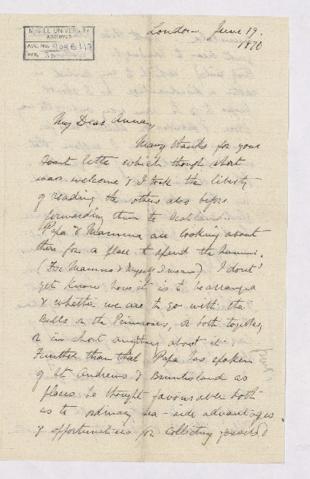 McGILL UNIVERSITY
ACC. NO.
London June 19.
1870
My Dear
Many thanks for your
letter which though short
was welcome & I took the liberty
of reading the others also before
forwarding them to
Papa & Mamma are looking about
there for a place to spend the summer.
(For Mamma & Myself I mean) I don't
yet know how it is to be arranged
& whether we are to go with the
Bells or the Primroses, or both together
or in short anything about it.
Further than that Papa has spoken
of St Andrews & Burntisland as
places he thought favourable both
as to ordinary sea-side advantages
& opportunities for collecting